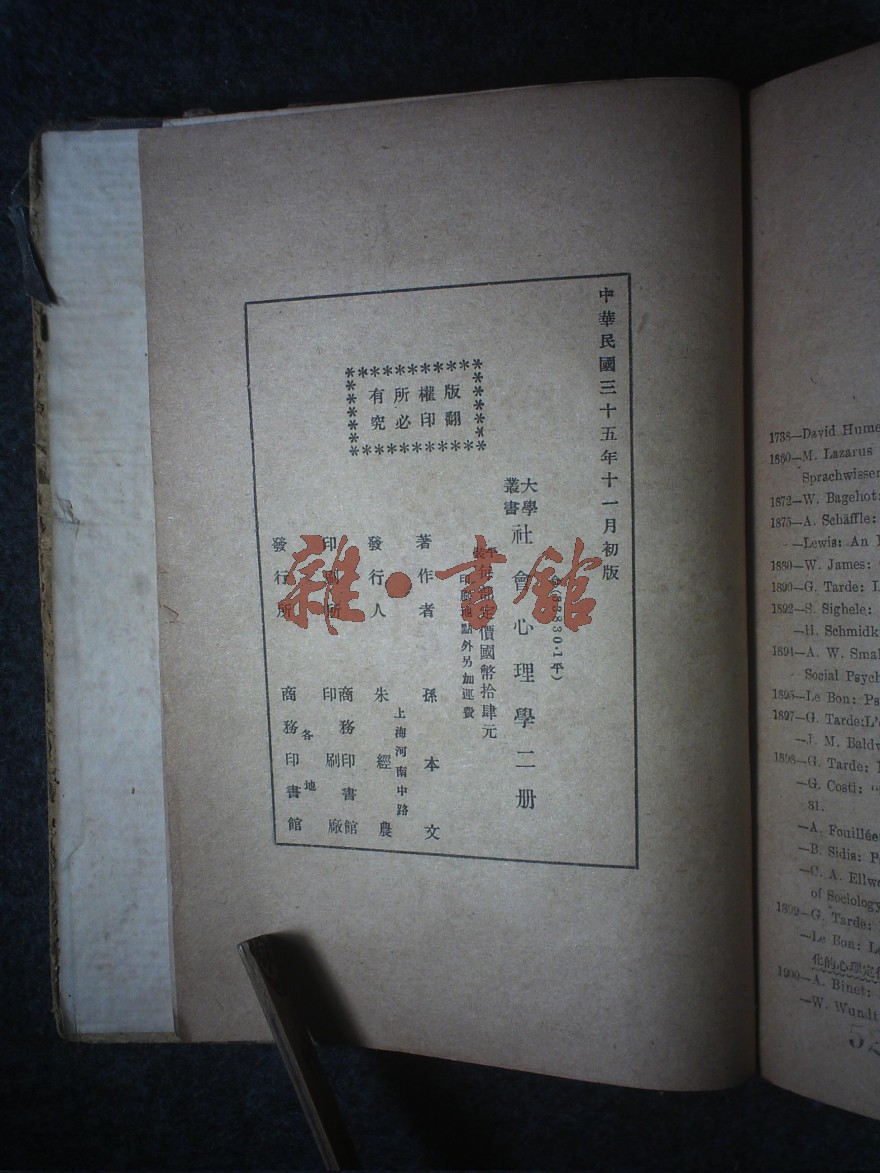 中華民國三十五年十一月初版
大學
叢書
社會心理學二册
(53830·1平)
價國幣拾肆元
印刷地點外另加運費
版權所有
翻印必究
著作者 孫本文
發行人 朱經農
上海河南中路
印刷所 商務印書館
印刷廠
發行所 商務印書館
各地
雜·書館
1738—David Hume
1860—M. Lazarus
Sprachwissen
1872—W. Bagehot:
1875—A. Schäffle:
—Lewis: An
1890—W. James:
1890—G. Tarde: L
1892—S. Sighele:
—H. Schmidk
1894—A. W. Smal
Social Psych
1895—Le Bon: Ps
1897—G. Tarde: L'
—J. M. Baldw
1898—G. Tarde:
—G. Costi: "
81.
—A. Fouillée
—B. Sidis: P
—C. A. Ellwo
of Sociology
1899—G. Tarde:
—Le Bon: L
化的心理定
1900—A. Binet:
—W. Wundt
52